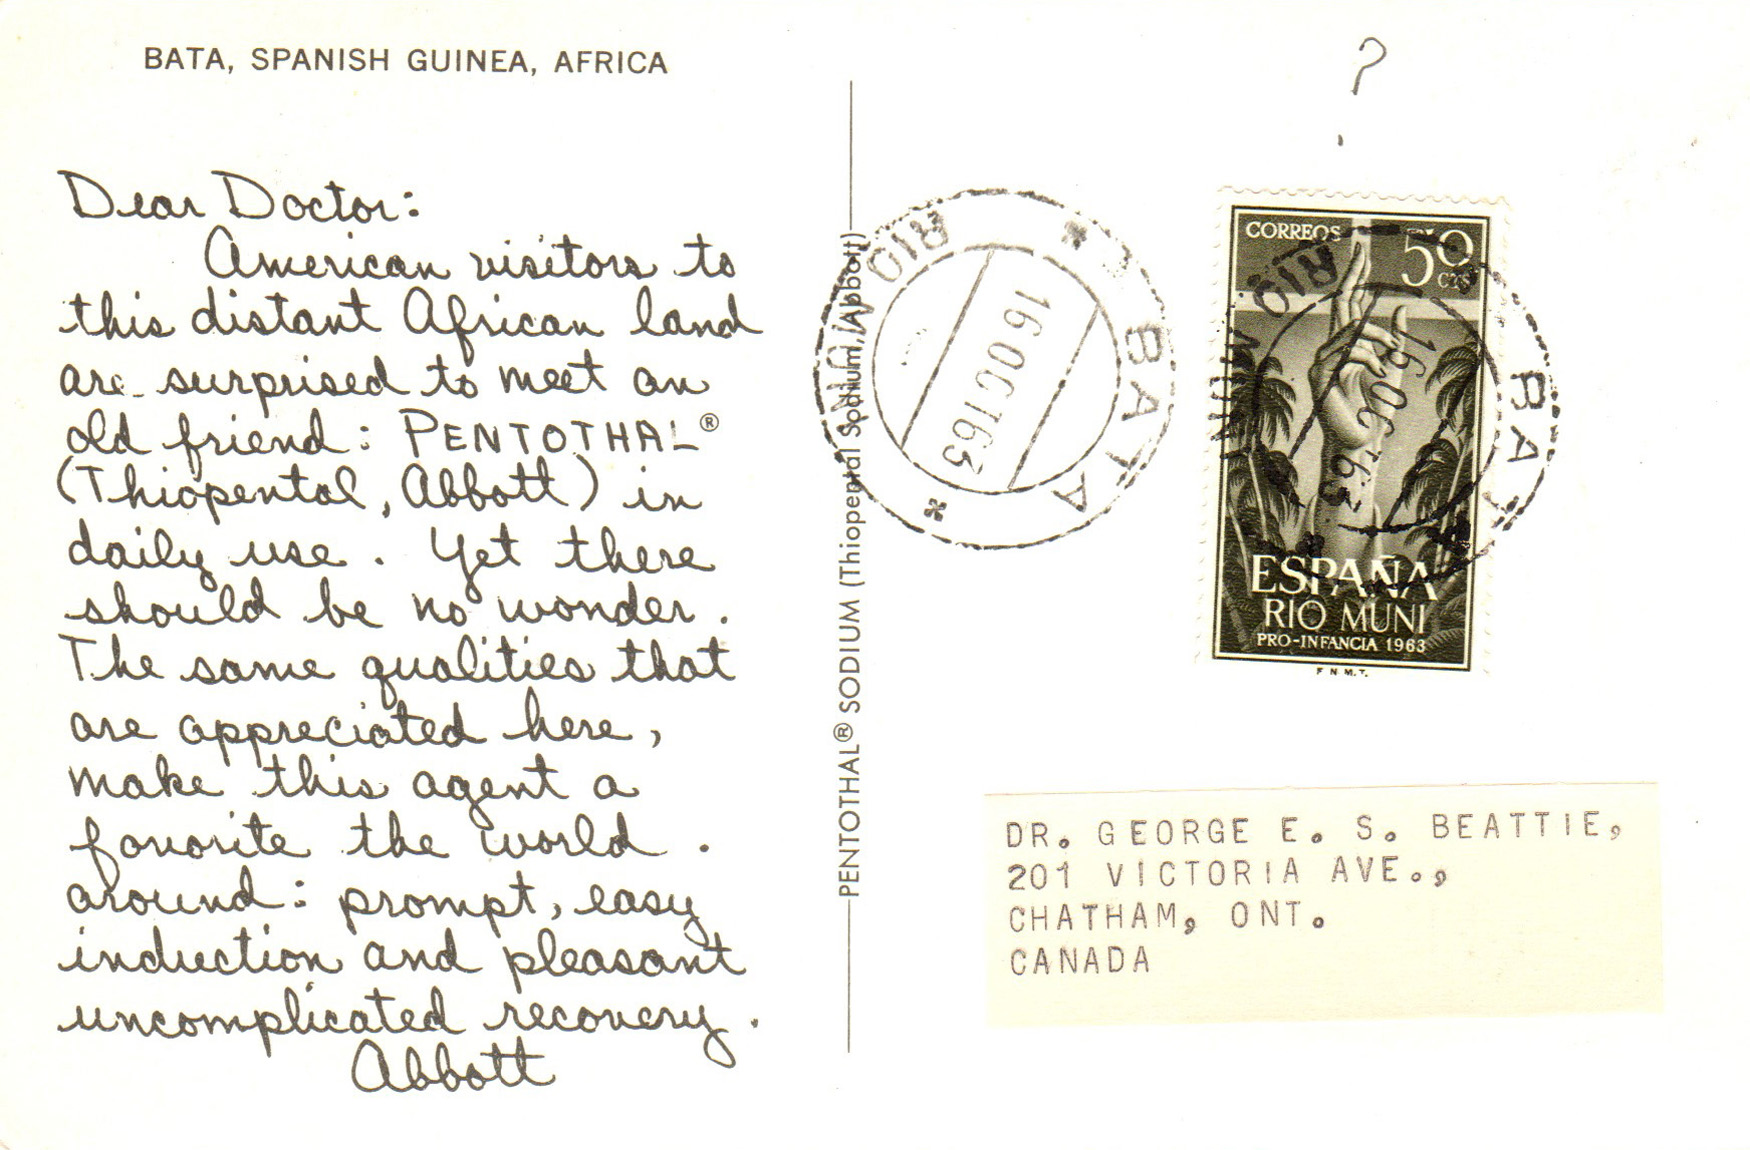 BATA, SPANISH GUINEA, AFRICA
Dear Doctor:
American visitors to
this distant African land
are surprised to meet an
old friend: PENTOTHAL®
(Thiopental, Abbott) in
daily use. Yet there
should be no wonder.
The same qualities that
are appreciated here,
make this agent a
favorite the world
around: prompt, easy
induction and pleasant
uncomplicated recovery.
Abbott
PENTOTHAL® SODIUM (Thiopental Sodium, Abbott)
?
RIO MUNI
* BATA *
16 OCT 63
CORREOS
50
CTS
RIO MUNI
BATA
16 OCT 63
ESPAÑA
RIO MUNI
PRO-INFANCIA 1963
F.N.M.T.
DR. GEORGE E. S. BEATTIE,
201 VICTORIA AVE.,
CHATHAM, ONT.
CANADA